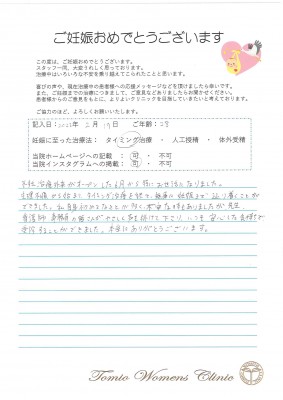 ご妊娠おめでとうございます
この度は、ご妊娠おめでとうございます。
スタッフ一同、大変うれしく思っております。
治療中はいろいろな不安を乗り越えてこられたことと思います。
喜びの声や、現在治療中の患者様への応援メッセージなどを頂けましたら幸いです。
また、ご妊娠までの治療につきまして、ご意見などありましたらお聞かせください。
患者様からのご意見をもとに、よりよいクリニックを目指していきたいと考えております。
ご協力のほど、よろしくお願い致します。
記入日： 年 2月 19日 ご年齢： 才
妊娠に至った治療法：タイミング治療 ・ 人工授精 ・ 体外受精
当院ホームページへの記載 ： 可 ・ 不可
当院インスタグラムへの掲載 ： 可 ・ 不可
不妊治療外来がオープンした6月から お世話になりました。
タイミング治療を経て、無事に妊娠まで辿り着くことが
できました。 初めてなことが多く、不安な時もありましたが 先生、
看護師、 の皆さんがやさしく声を掛けて下さり、いつも安心した気持ちで
ことができました。本当にありがとうございます。
Tomio Womens Clinic